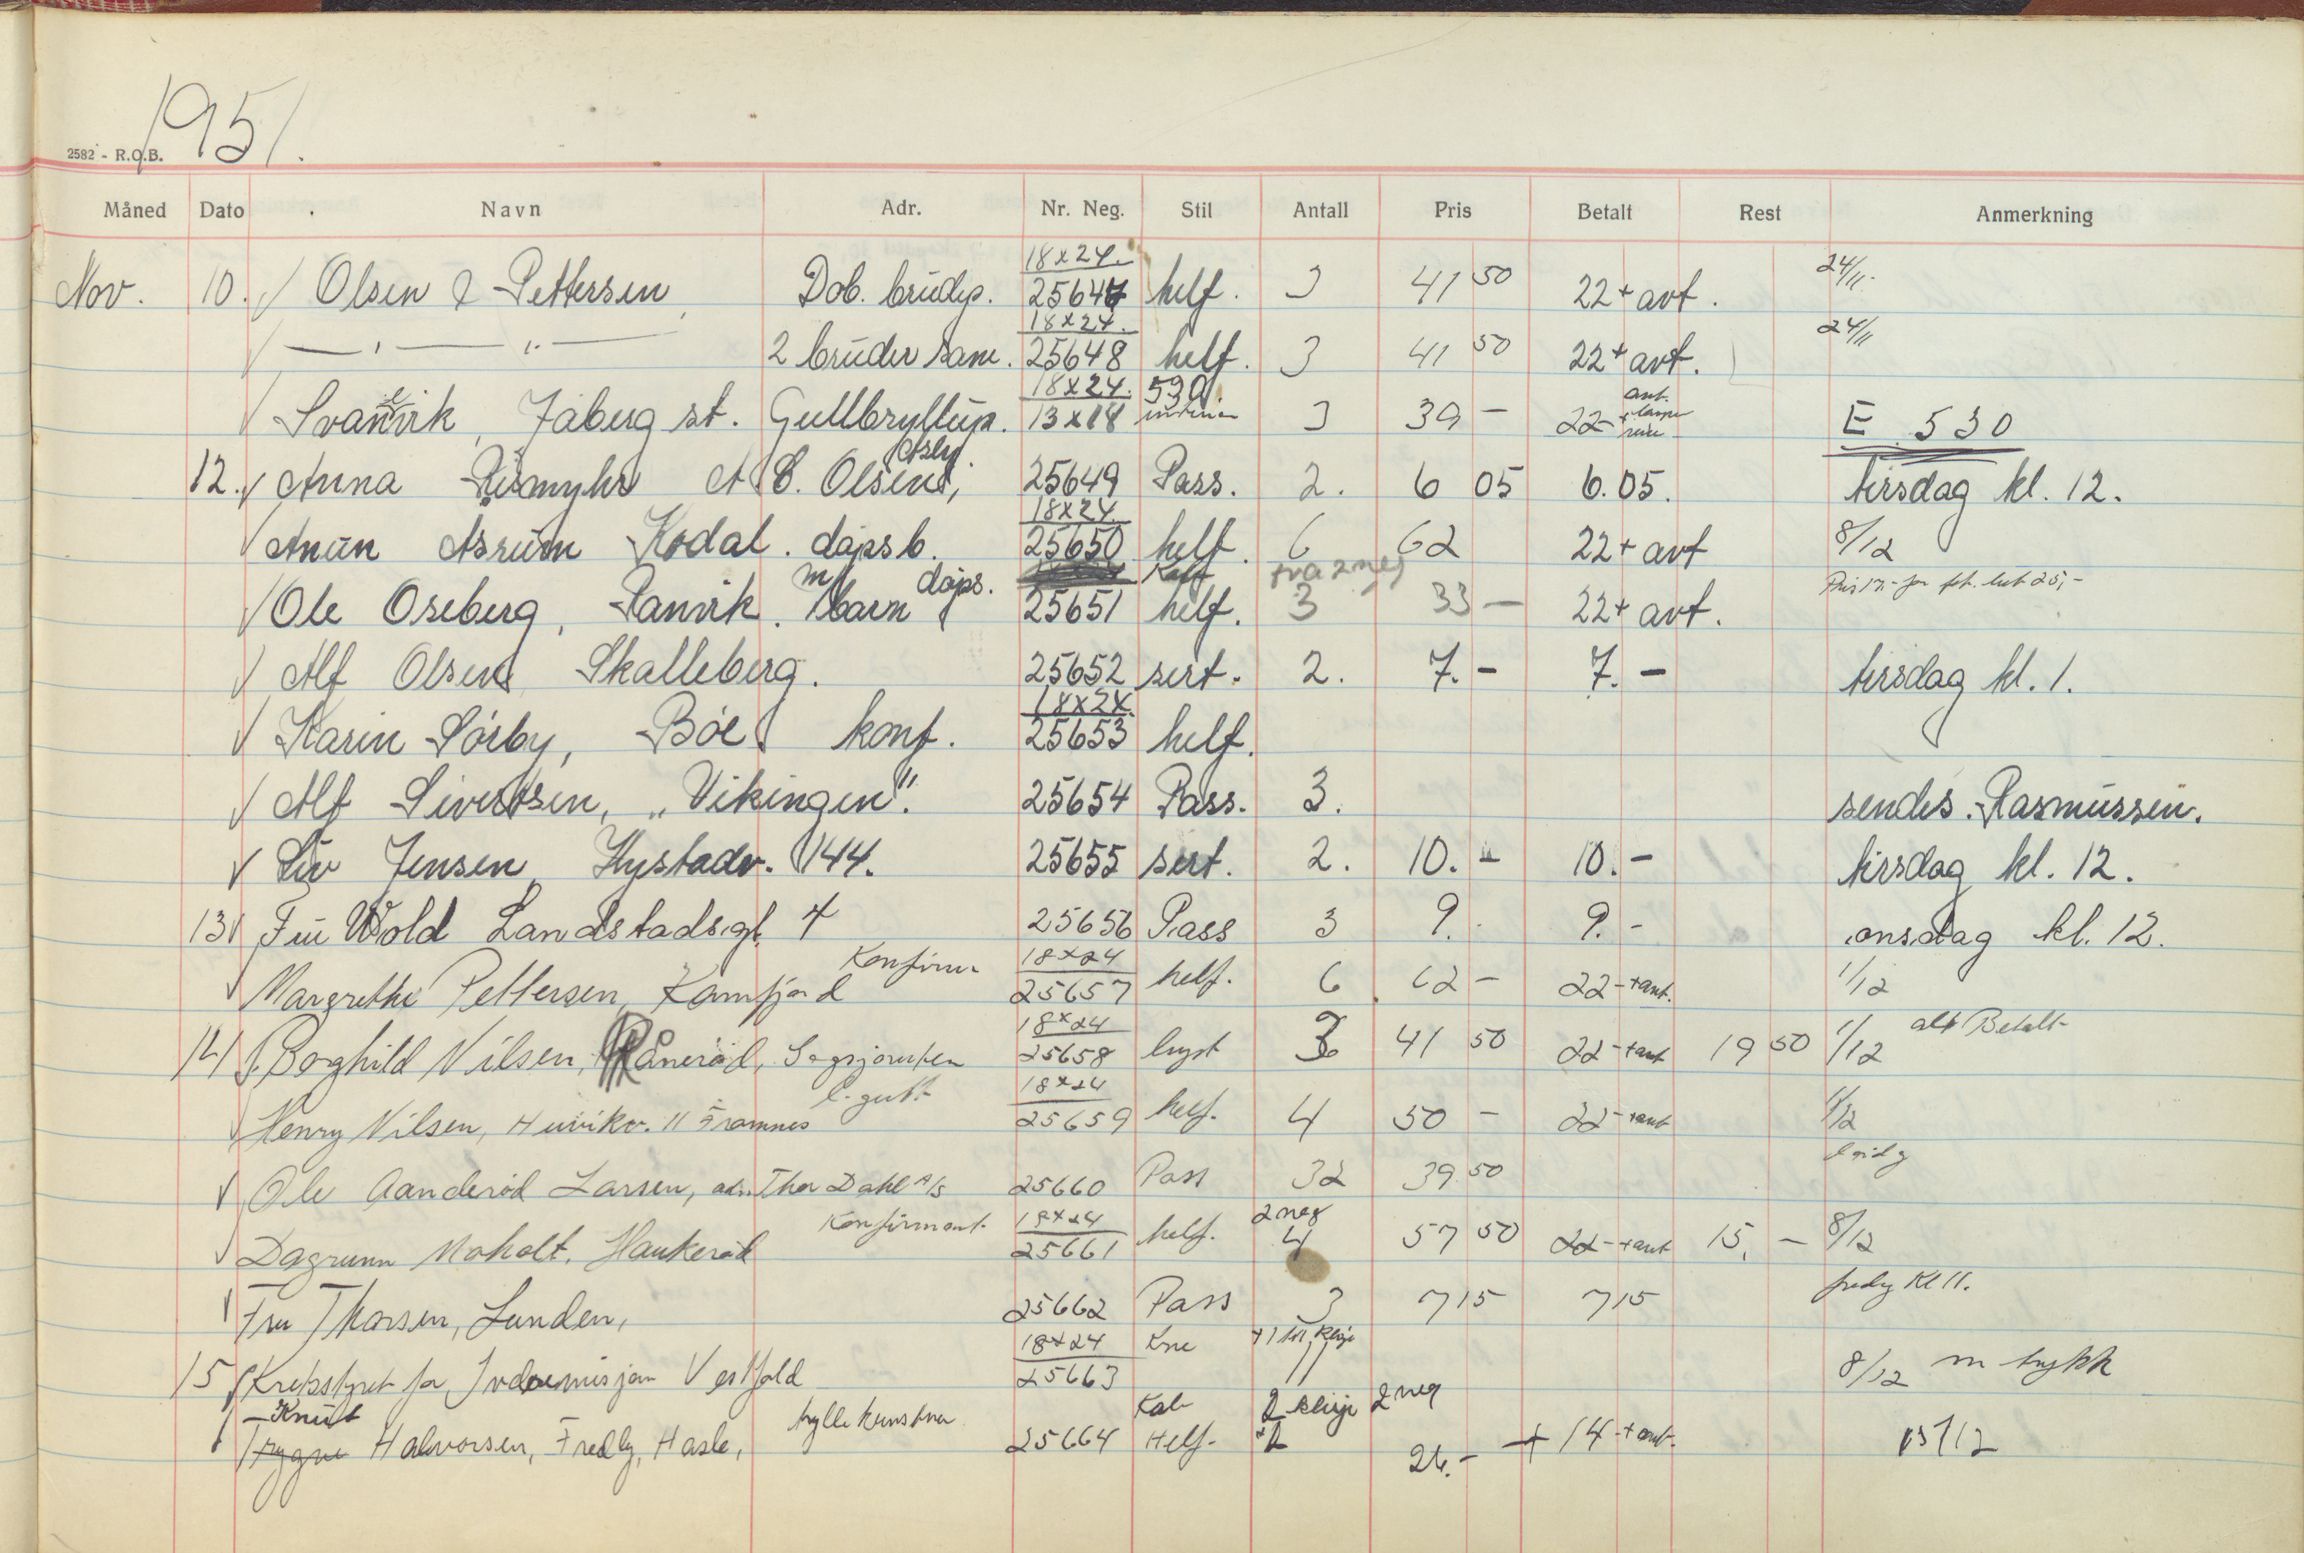 1951.
2582 - R.O.B.
Måned Dato Navn Adr. Nr. Neg. Stil Antall Pris Betalt Rest Anmerkning
18x24.
Nov. 10. √ Olsen & Pettersen, Dob. brudep. 25647 helf. 3 41 50 22 + avt. 24/11.
18x24.
√ — " — " — 2 bruder sam. 25648 helf. 3 41 50 22 + avt. 24/11
18x24. 530
√ Svanvik, Jåberg st. Gullbryllup. 13x18 interiør 3 39 - 22 - + E 530
Asly.
12. √ Anna Rismyhr A B. Olsens, 25649 Pass. 2. 6 05 6.05. tirsdag kl. 12.
18x24
√ Anun Asrum Kodal. dåpsb. 25650 helf. 6 62 22 + avt 8/12
m/ dåps. Kab. fra 2 neg
√ Ole Oseberg, Ranvik. 1 barn 25651 helf. 3 33 - 22 + avt.
√ Alf Olsen Skalleberg. 25652 sert. 2. 7. - 7. - tirsdag kl. 1.
18x24.
√ Karin Sörby, Böe konf. 25653 helf.
√ Alf Sivertsen, "Vikingen". 25654 Pass. 3. sendes. Rasmussen.
√ Siv Jensen, Hystadv. 144. 25655 sert. 2. 10. - 10. - tirsdag kl. 12.
13 √ Fru Wold Landstadsgt. 4 25656 Pass 3 9. - 9. - onsdag kl. 12.
Konfirm 18x24
√ Margrethe Pettersen, Kamfjord 25657 helf. 6 62 - 22 - + ant. 1/12
18x24
14 √ Borghild Nilsen, Råneröd, 25658 bryst 3 41 50 22 - + ant 19 50 1/12 alt Betalt
l. gutt 18x24
√ Henry Nilsen, Huvikv. 11 Framnes 25659 helf. 4 50 - 22 - + ant 1/12
√ Ole Aanderöd Larsen, adr. Thor Dahl A/S 25660 Pass 32 39 50
Konfirmant. 18x24 2 neg
√ Dagrunn Moholt, Haukeröd 25661 helf. 4 57 50 22 - + ant 15, - 8/12
√ Fru Thorsen, Lunden, 25662 Pass 3 7 15 7 15 fredag Kl 11.
18x24 Kne
15 √ Kretsstyret for Indremisjon Vestfold 25663 11 8/12 m trykk
- Knut tryllekunstner Kab 2 klisje 2 neg
√ Trygve Halvorsen, Fredly, Hasle, 25664 Helf. 2 26. - + 14 - + ant. 15/12